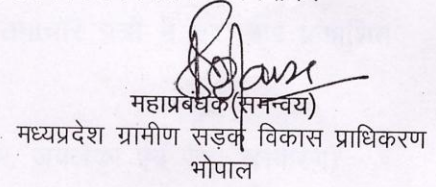 महाप्रबंधक(समन्वय)
मध्यप्रदेश ग्रामीण सड़क विकास प्राधिकरण
भोपाल